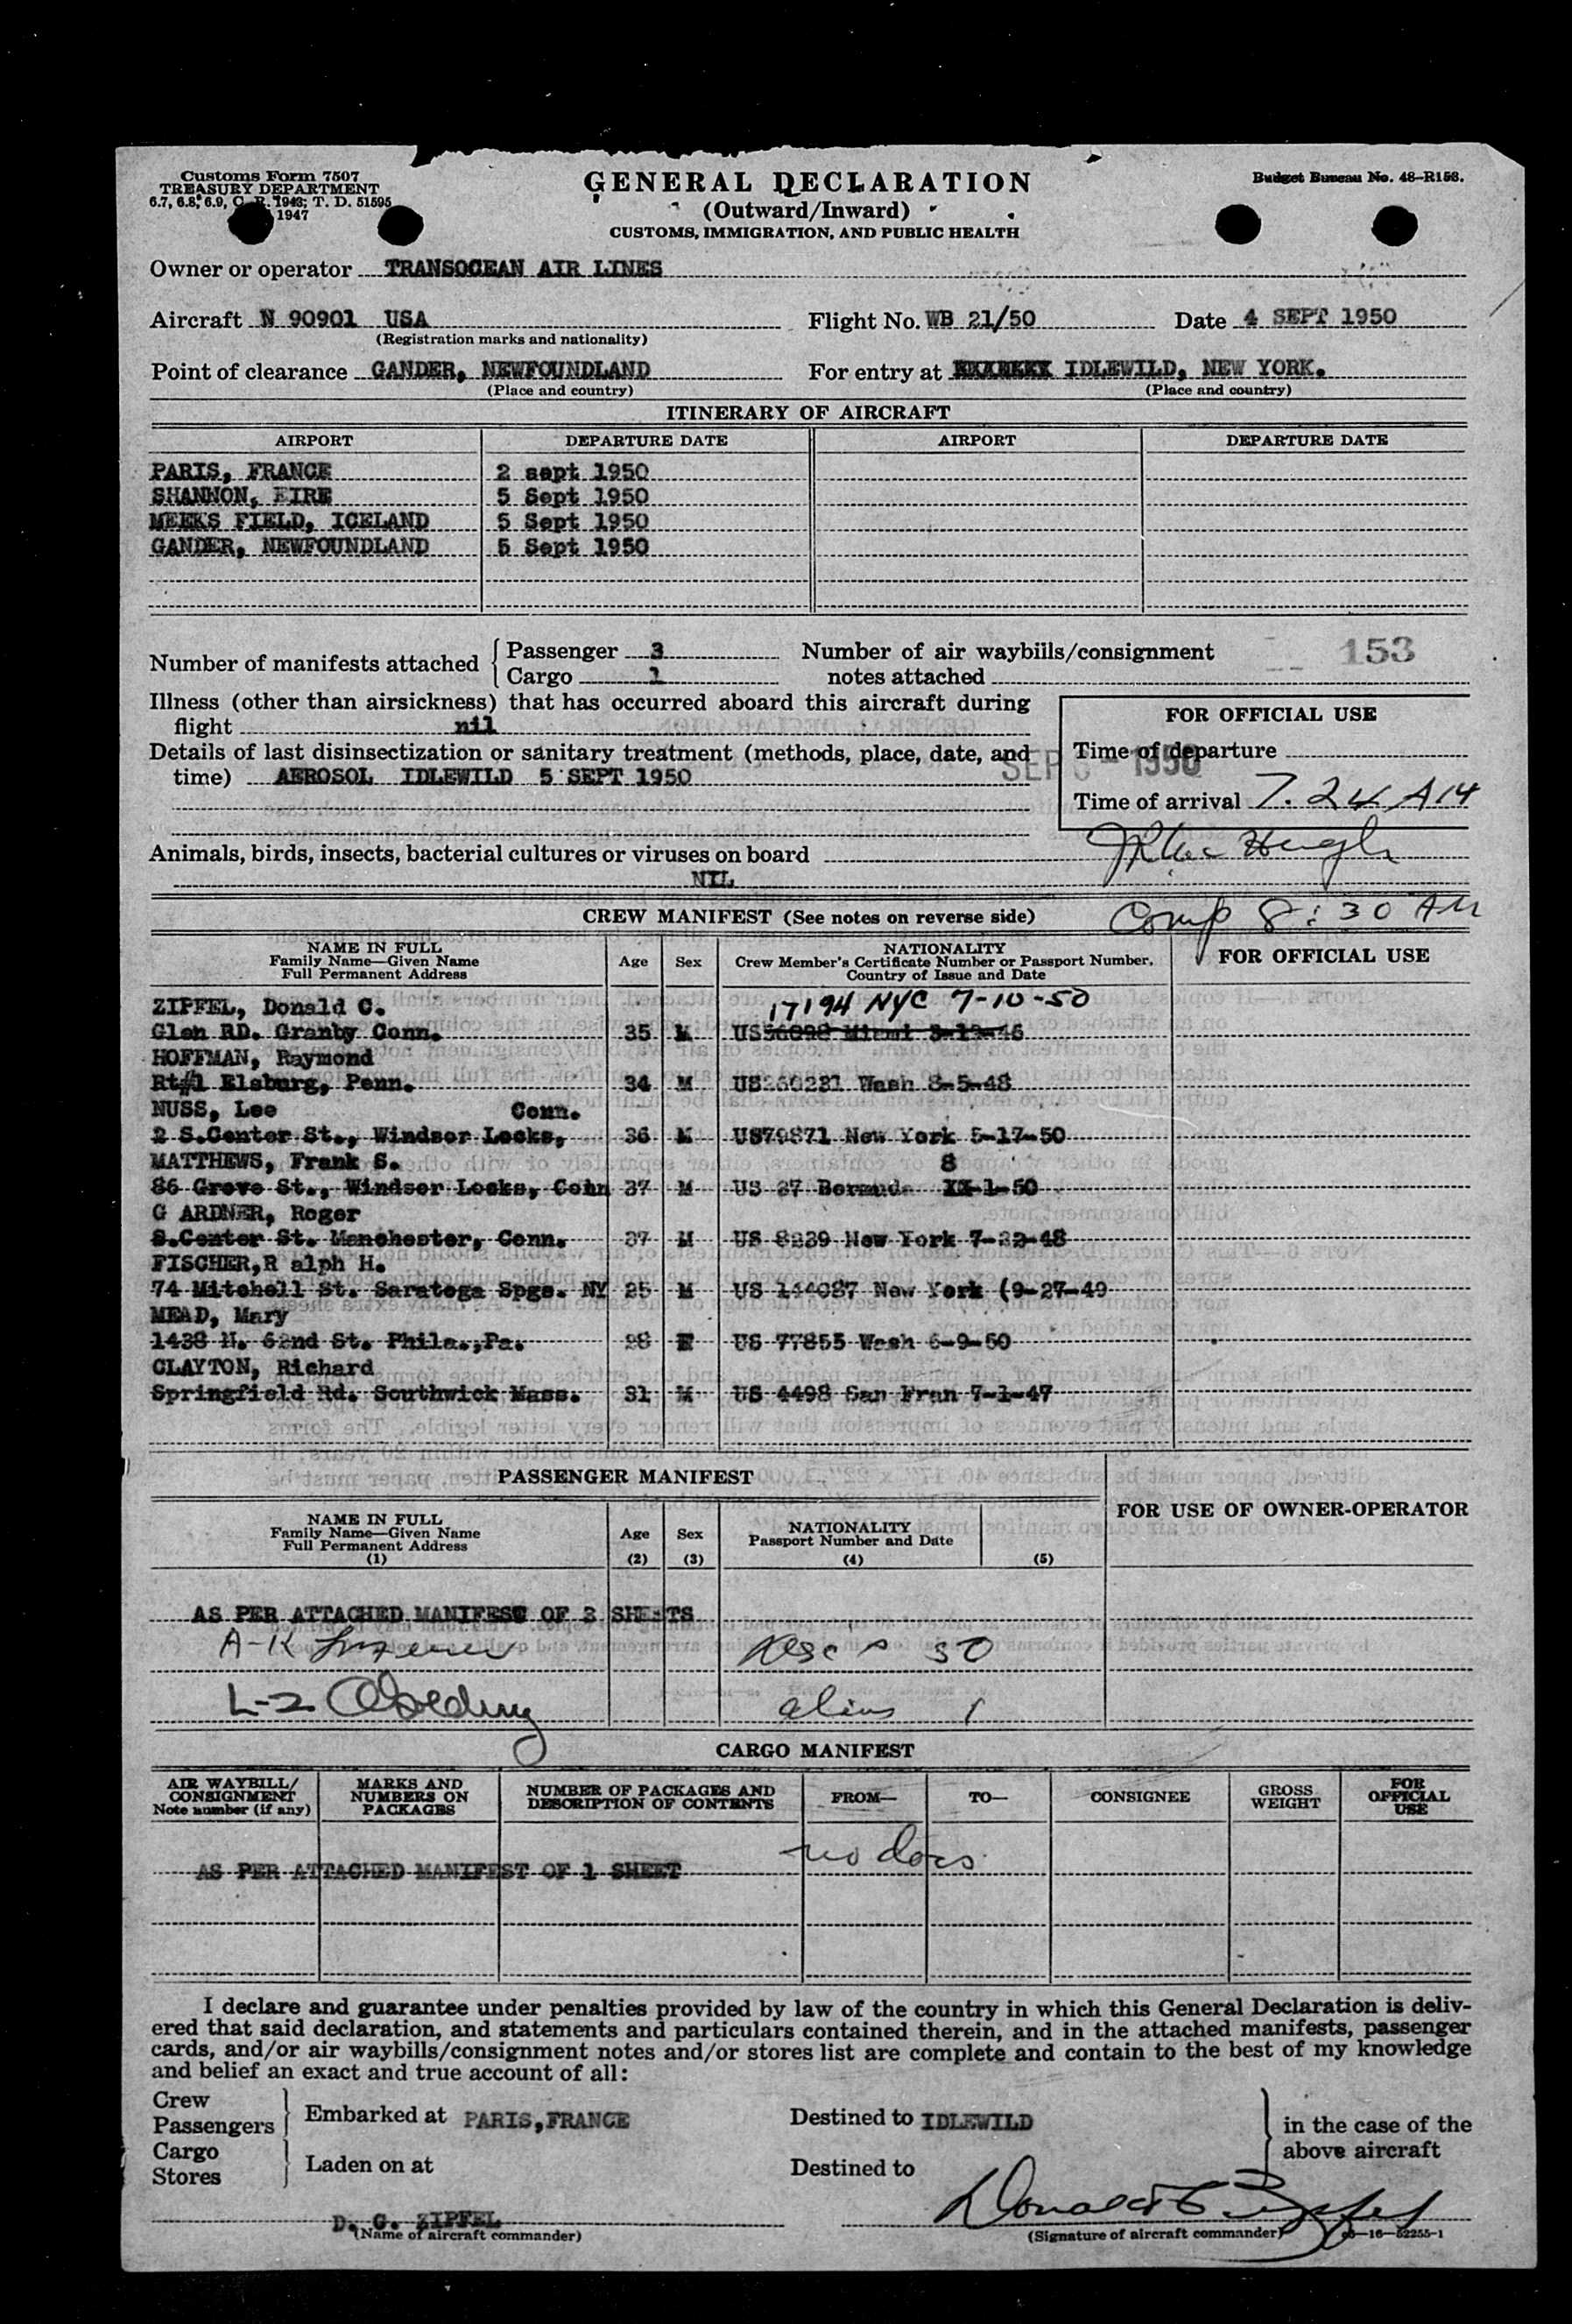 Customs Form 7507
TREASURY DEPARTMENT
6.7, 6.8, 6.9, C. R. 1943; T. D. 51595
1947
GENERAL DECLARATION
(Outward/Inward)
CUSTOMS, IMMIGRATION, AND PUBLIC HEALTH
Budget Bureau No. 48–R158.
Owner or operator TRANSOCEAN AIR LINES
Aircraft N 90901 USA Flight No. WB 21/50 Date 4 SEPT 1950
(Registration marks and nationality)
Point of clearance GANDER, NEWFOUNDLAND For entry at IDLEWILD, NEW YORK.
(Place and country) (Place and country)
ITINERARY OF AIRCRAFT
AIRPORT DEPARTURE DATE AIRPORT DEPARTURE DATE
PARIS, FRANCE 2 sept 1950
SHANNON, EIRE 5 Sept 1950
MEEKS FIELD, ICELAND 5 Sept 1950
GANDER, NEWFOUNDLAND 5 Sept 1950
Number of manifests attached Passenger 3 Cargo 1
Number of air waybills/consignment notes attached
153
Illness (other than airsickness) that has occurred aboard this aircraft during
flight nil
Details of last disinsectization or sanitary treatment (methods, place, date, and
time) AEROSOL IDLEWILD 5 SEPT 1950
FOR OFFICIAL USE
Time of departure
SEP - 1950
Time of arrival 7.24 AM
Animals, birds, insects, bacterial cultures or viruses on board
NIL
Comp 8:30 AM
CREW MANIFEST (See notes on reverse side)
NAME IN FULL
Family Name—Given Name
Full Permanent Address
Age Sex
NATIONALITY
Crew Member's Certificate Number or Passport Number,
Country of Issue and Date
FOR OFFICIAL USE
ZIPFEL, Donald C. 17194 NYC 7-10-50
Glen RD. Granby Conn. 35 M US56098 Miami 3-13-46
HOFFMAN, Raymond
Rt#1 Elsburg, Penn. 34 M US260231 Wash 8-5-48
NUSS, Lee Conn.
2 S.Center St., Windsor Locks, 36 M US79871 New York 5-17-50
MATTHEWS, Frank S. 8
86 Grove St., Windsor Locks, Conn 37 M US 37 Bermuda XX-1-50
G ARDNER, Roger
S.Center St. Manchester, Conn. 37 M US 8239 New York 7-22-48
FISCHER,R alph H.
74 Mitchell St. Saratoga Spgs. NY 25 M US 144087 New York (9-27-49
MEAD, Mary
1438 N. 62nd St. Phila.,Pa. 28 F US 77855 Wash 6-9-50
CLAYTON, Richard
Springfield Rd. Southwick Mass. 31 M US 4498 San Fran 7-1-47
PASSENGER MANIFEST
FOR USE OF OWNER-OPERATOR
NAME IN FULL
Family Name—Given Name
Full Permanent Address
(1)
Age
(2)
Sex
(3)
NATIONALITY
Passport Number and Date
(4) (5)
AS PER ATTACHED MANIFEST OF 3 SHEETS
A-K 50
L-Z alien 1
CARGO MANIFEST
AIR WAYBILL/
CONSIGNMENT
Note number (if any)
MARKS AND
NUMBERS ON
PACKAGES
NUMBER OF PACKAGES AND
DESCRIPTION OF CONTENTS
FROM— TO— CONSIGNEE
GROSS
WEIGHT
FOR
OFFICIAL
USE
no docs
AS PER ATTACHED MANIFEST OF 1 SHEET
I declare and guarantee under penalties provided by law of the country in which this General Declaration is deliv-
ered that said declaration, and statements and particulars contained therein, and in the attached manifests, passenger
cards, and/or air waybills/consignment notes and/or stores list are complete and contain to the best of my knowledge
and belief an exact and true account of all:
Crew
Passengers
Embarked at PARIS,FRANCE Destined to IDLEWILD
in the case of the
above aircraft
Cargo
Stores
Laden on at Destined to
D. C. ZIPFEL
(Name of aircraft commander)
Donald C Zipfel
(Signature of aircraft commander) 16—52255-1